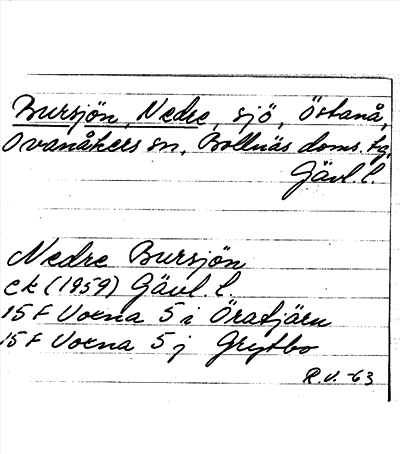 Bursjön, Nedre, sjö, Östanå,
Ovanåkers sn, Bollnäs doms. tg,
Gävl. l.
Nedre Bursjön
ek (1959) Gävl. l.
15 F Voxna 5 i Öratjärn
15 F Voxna 5 j Grytbo
R.V. -63